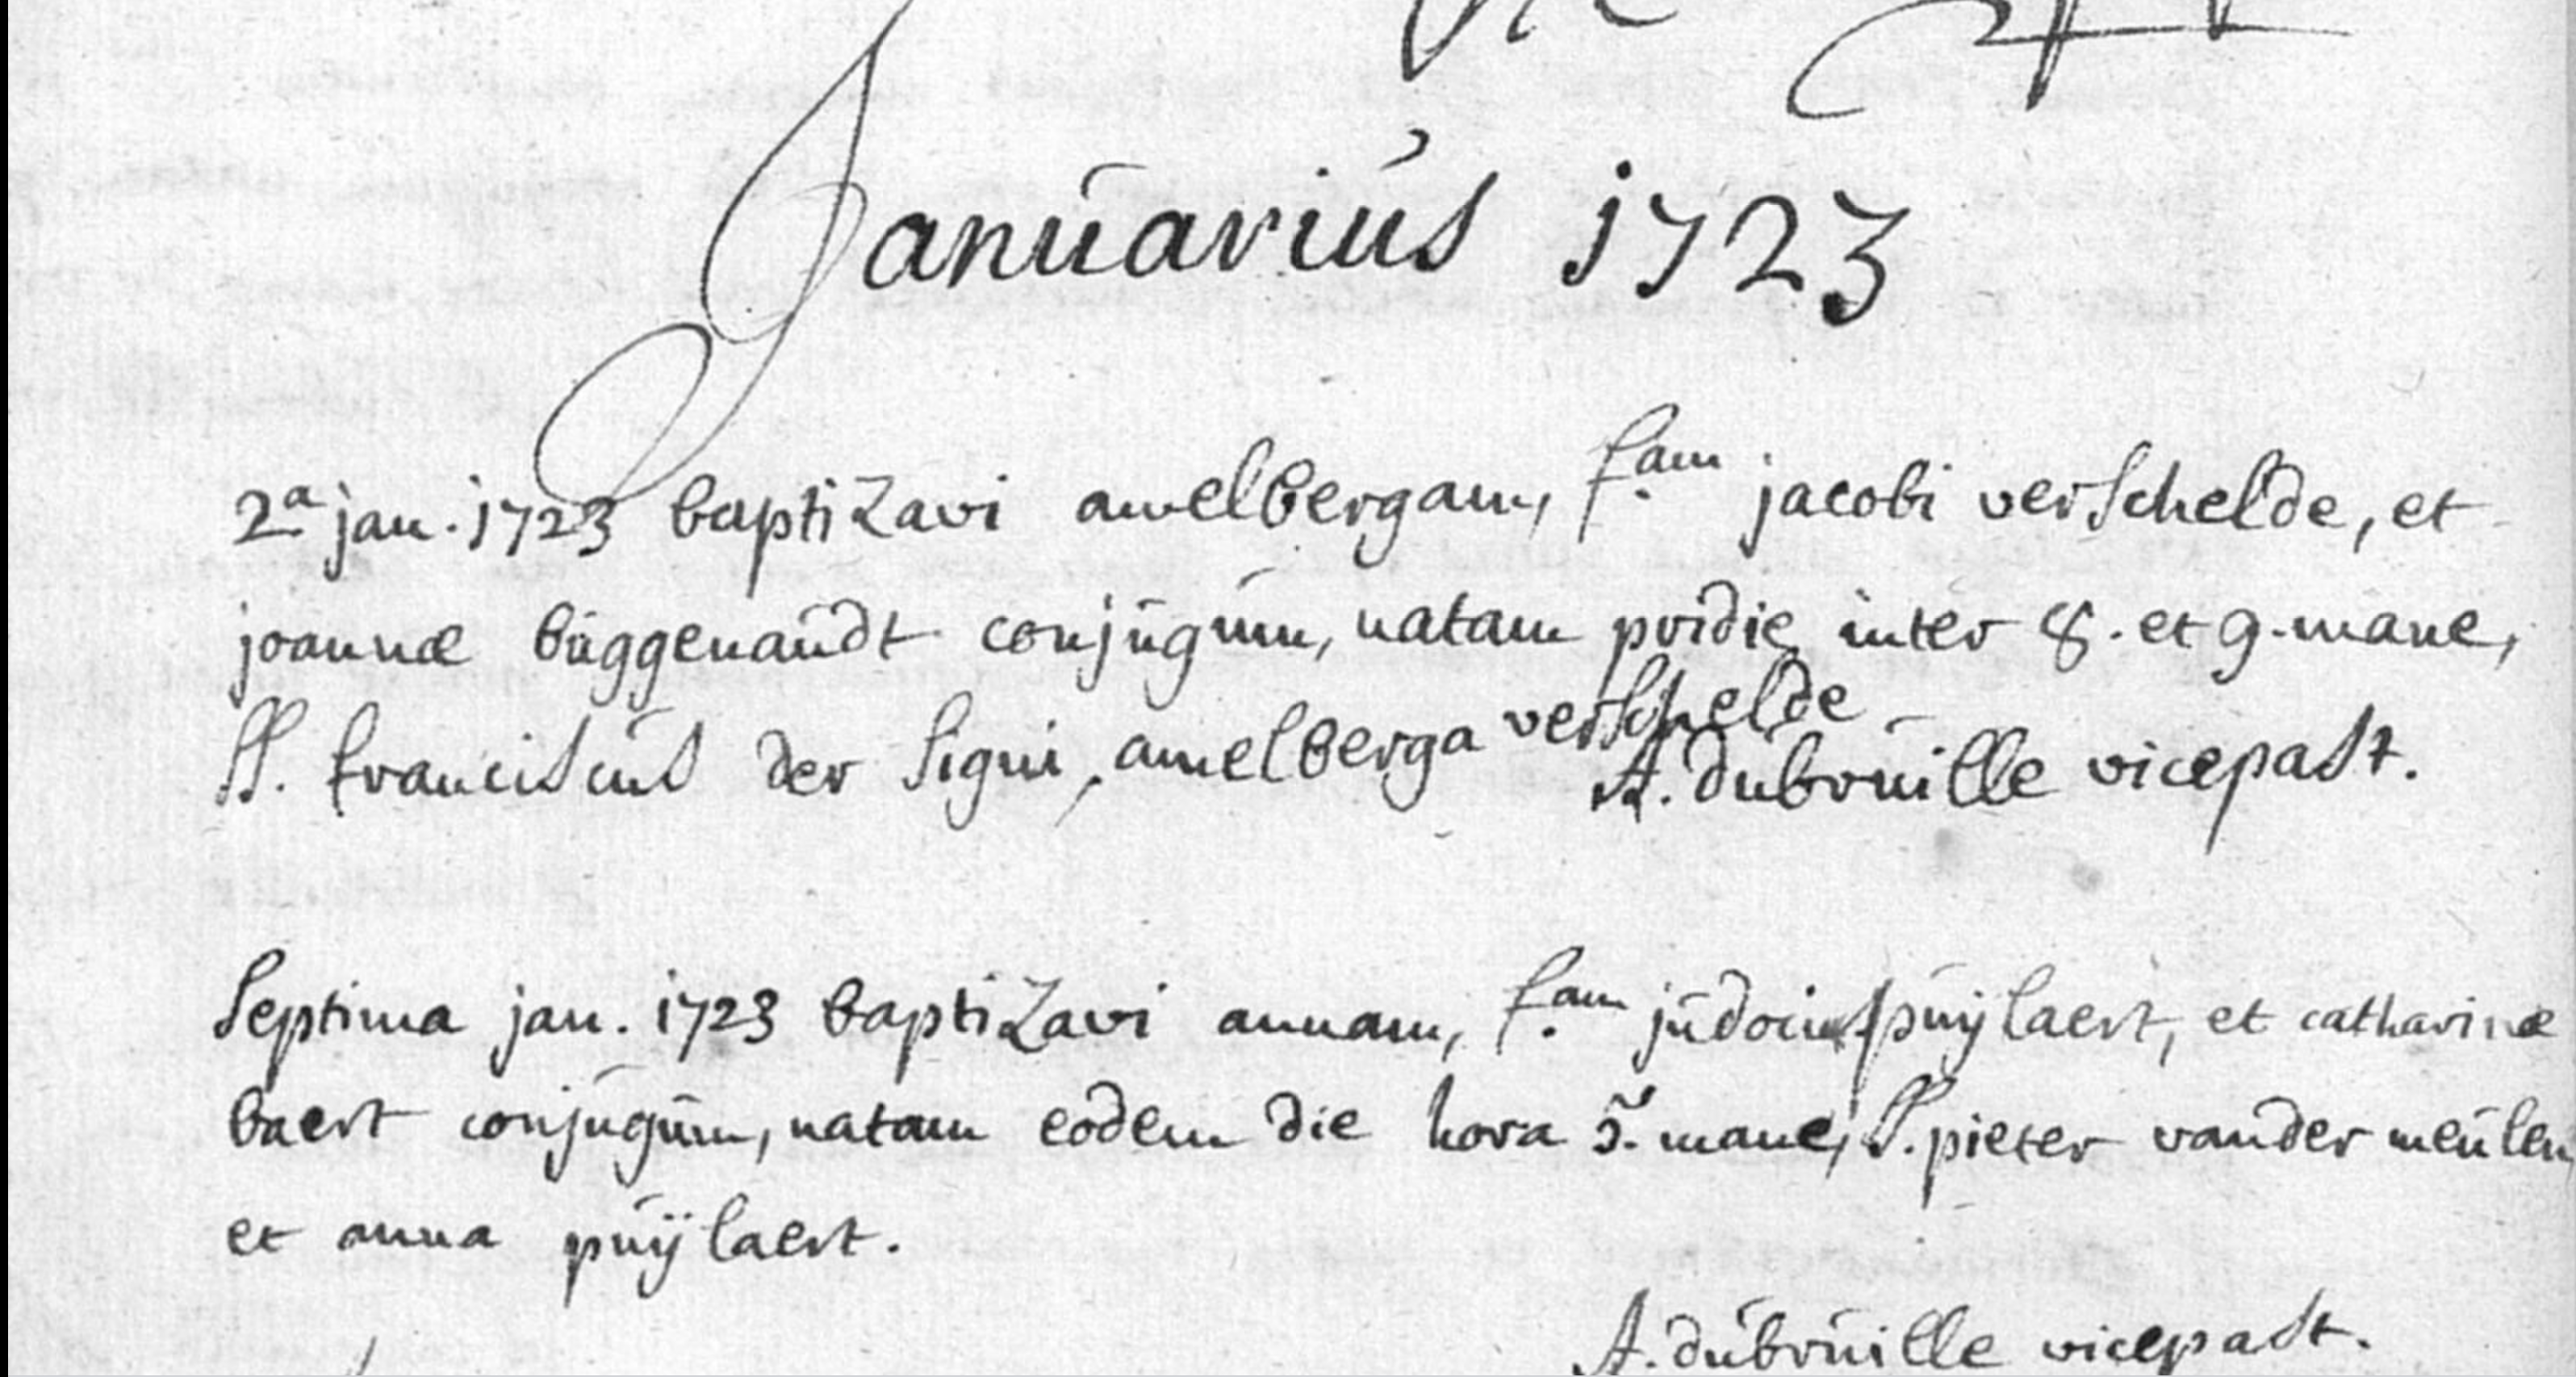 Januarius 1723
2a jan. 1723 baptizavi amelbergam, f.am jacobi verschelde, et
joannæ buggenaudt conjugum, natam pridie inter 8. et 9. mane,
SS. franciscus der signi, amelberga verschelde
A. dubruille vicepast.
Septima jan. 1723 baptizavi annam, f.am judoci puijlaert, et catharinæ
baert conjugum, natam eodem die hora 5. mane, SS. pieter vander meulen
et anna puijlaert.
A. dubruille vicepast.